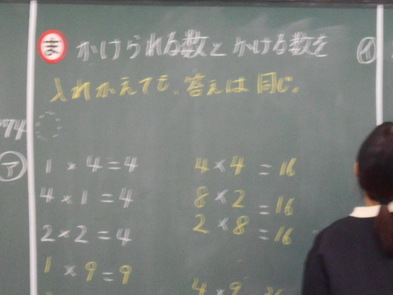 ま かけられる数とかける数を
入れかえても、答えは同じ。
ア
イ
1×4=4
4×1=4
2×2=4
1×9=9
4×4=16
8×2=16
2×8=16
4×9